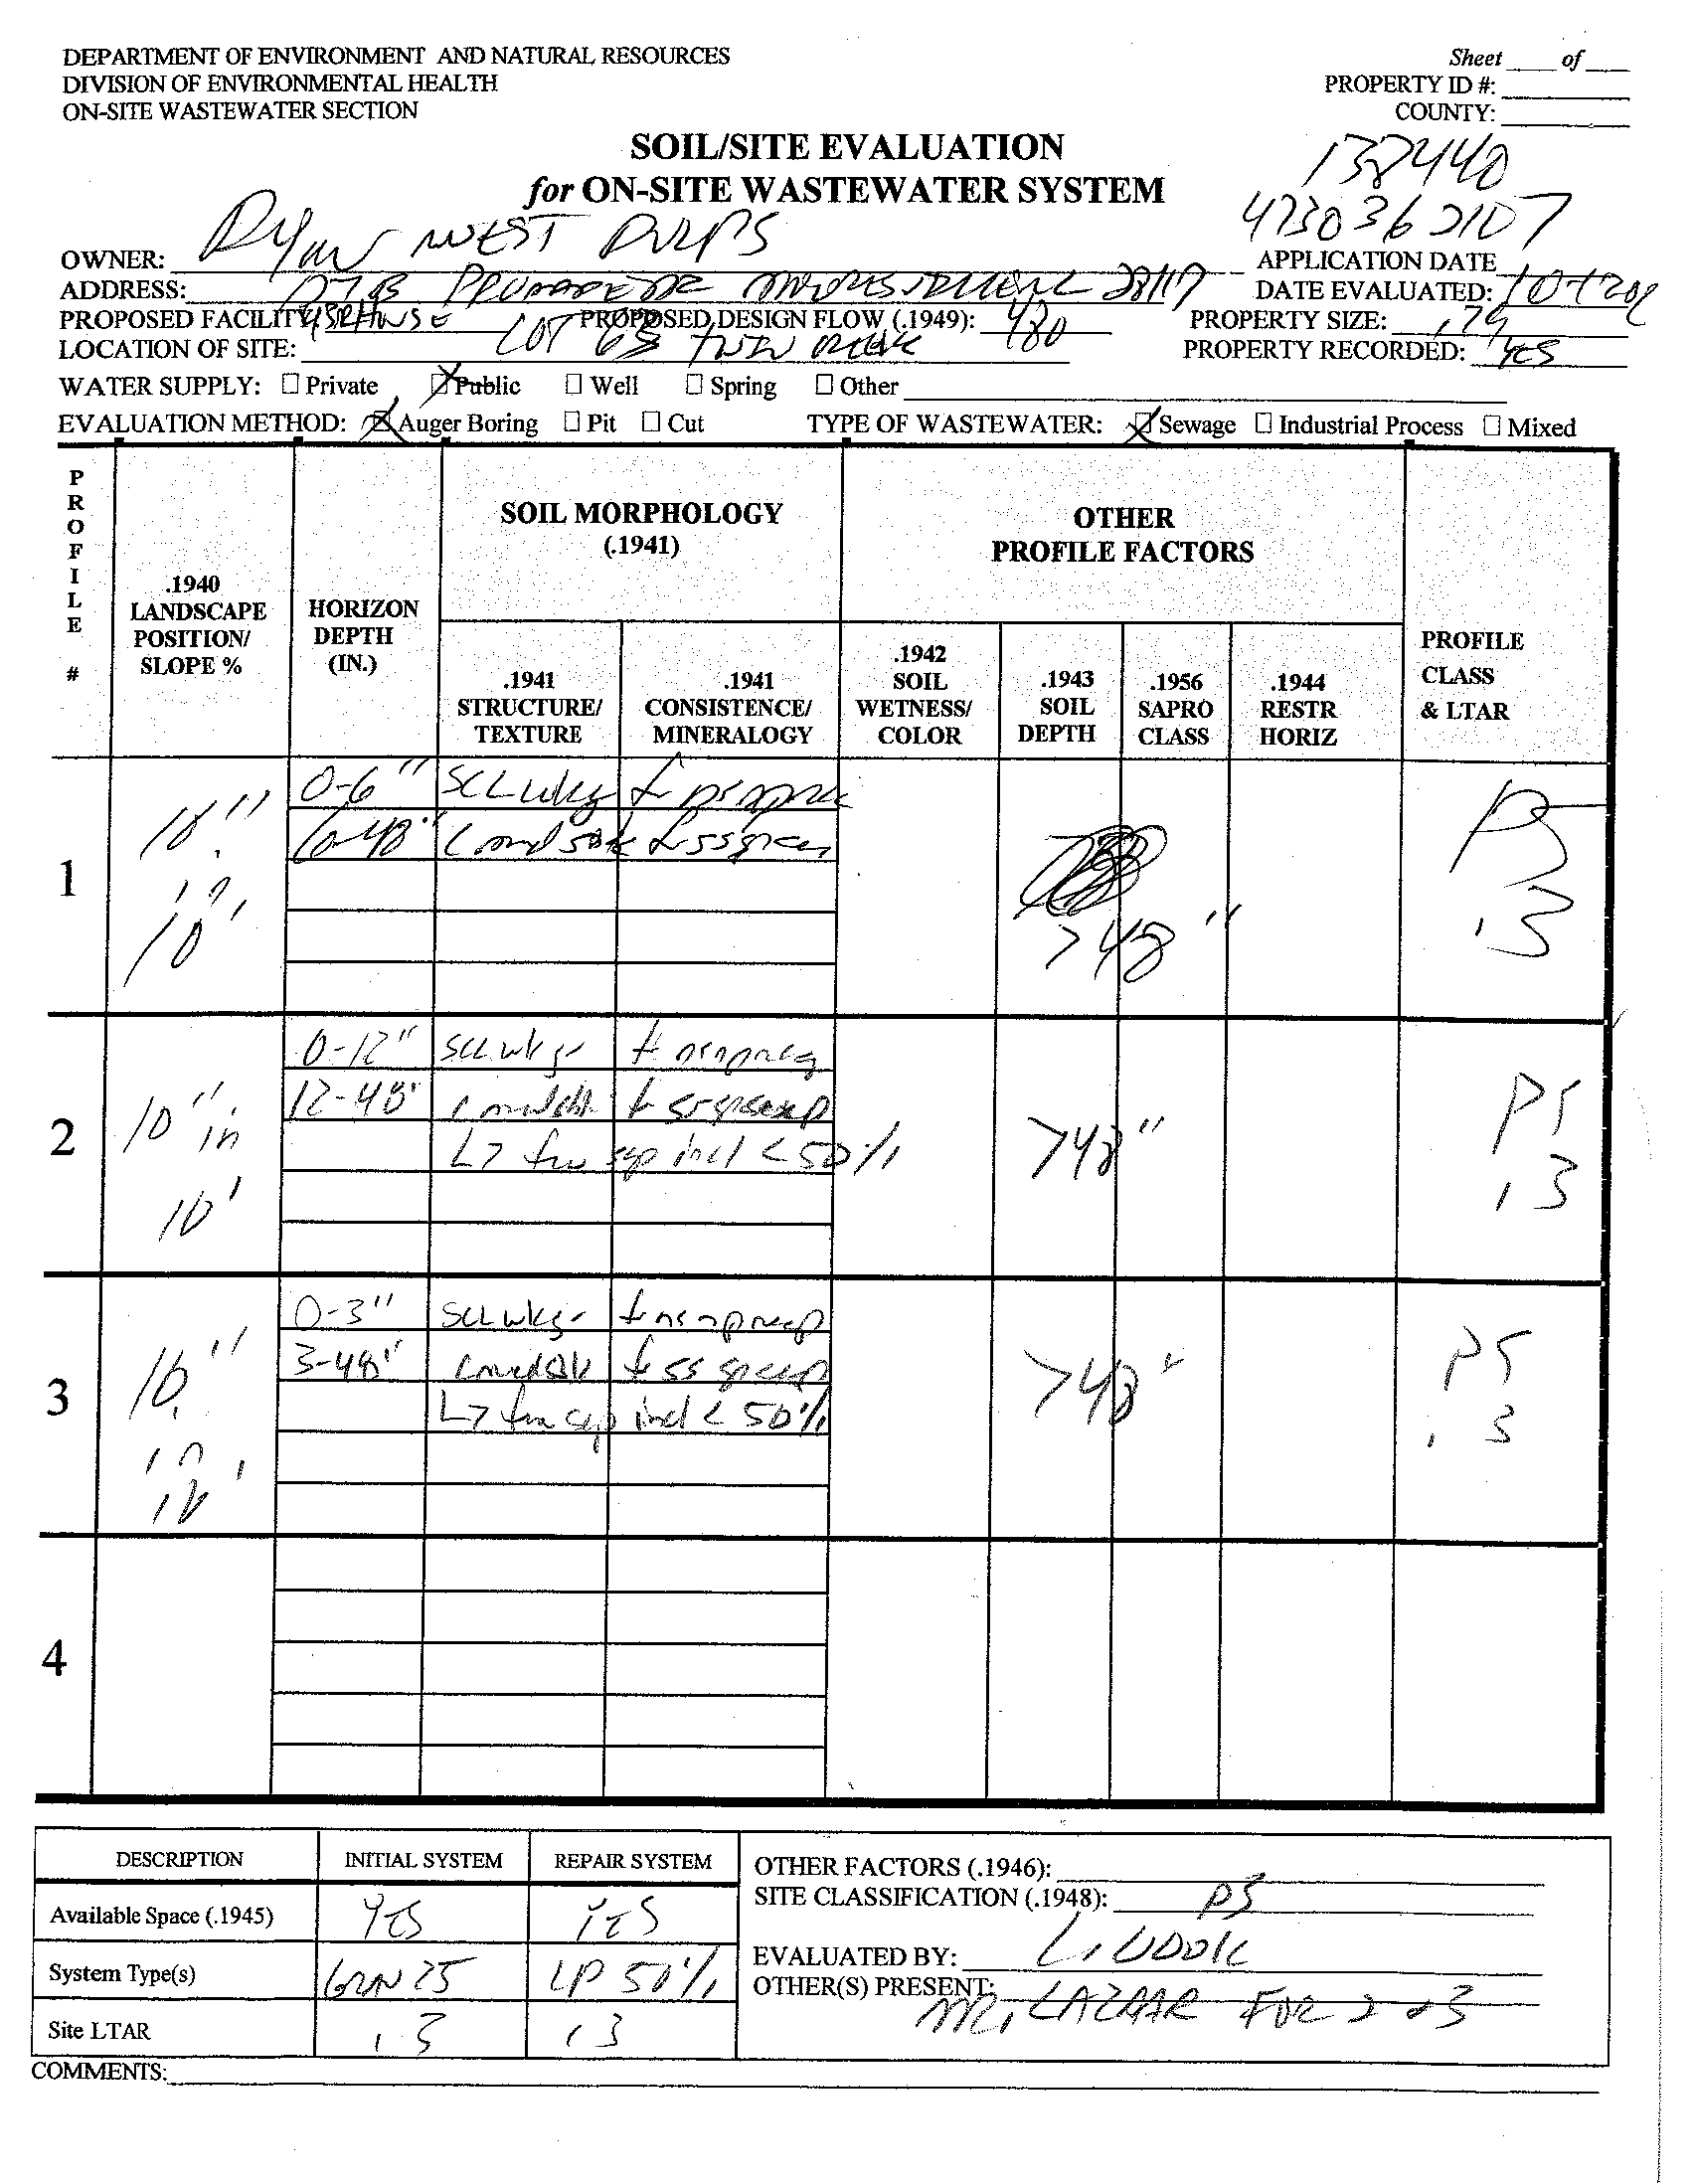 DEPARTMENT OF ENVIRONMENT AND NATURAL RESOURCES
DIVISION OF ENVIRONMENTAL HEALTH
ON-SITE WASTEWATER SECTION
Sheet ____ of ____
PROPERTY ID #:
COUNTY:
SOIL/SITE EVALUATION
for ON-SITE WASTEWATER SYSTEM
138440
4730362107
OWNER: Ryan WEST
APPLICATION DATE
ADDRESS: 28117
DATE EVALUATED:
PROPOSED FACILITY: PROPOSED DESIGN FLOW (.1949): 480
PROPERTY SIZE: .79
LOCATION OF SITE: LOT 63 TWIN
PROPERTY RECORDED: YES
WATER SUPPLY: Private Public Well Spring Other
EVALUATION METHOD: Auger Boring Pit Cut
TYPE OF WASTEWATER: Sewage Industrial Process Mixed
PROFILE #
.1940 LANDSCAPE POSITION/ SLOPE %
HORIZON DEPTH (IN.)
SOIL MORPHOLOGY (.1941)
OTHER PROFILE FACTORS
.1941 STRUCTURE/ TEXTURE
.1941 CONSISTENCE/ MINERALOGY
.1942 SOIL WETNESS/ COLOR
.1943 SOIL DEPTH
.1956 SAPRO CLASS
.1944 RESTR HORIZ
PROFILE CLASS & LTAR
1
10" in 10'
0-6" SCL wkgr
6-48"
>48"
PS
.3
2
10" in 10'
0-12" SCL wkgr
12-48"
L> few sap incl <50%
>48"
PS
.3
3
10" in 10'
0-3" SCL wkgr
3-48"
L> few sap incl <50%
>48"
PS
.3
4
DESCRIPTION INITIAL SYSTEM REPAIR SYSTEM
Available Space (.1945) YES YES
System Type(s) 25 LP 50%
Site LTAR .3 .3
OTHER FACTORS (.1946):
SITE CLASSIFICATION (.1948): PS
EVALUATED BY:
OTHER(S) PRESENT: MR. LAZAAR FOR 2 & 3
COMMENTS: